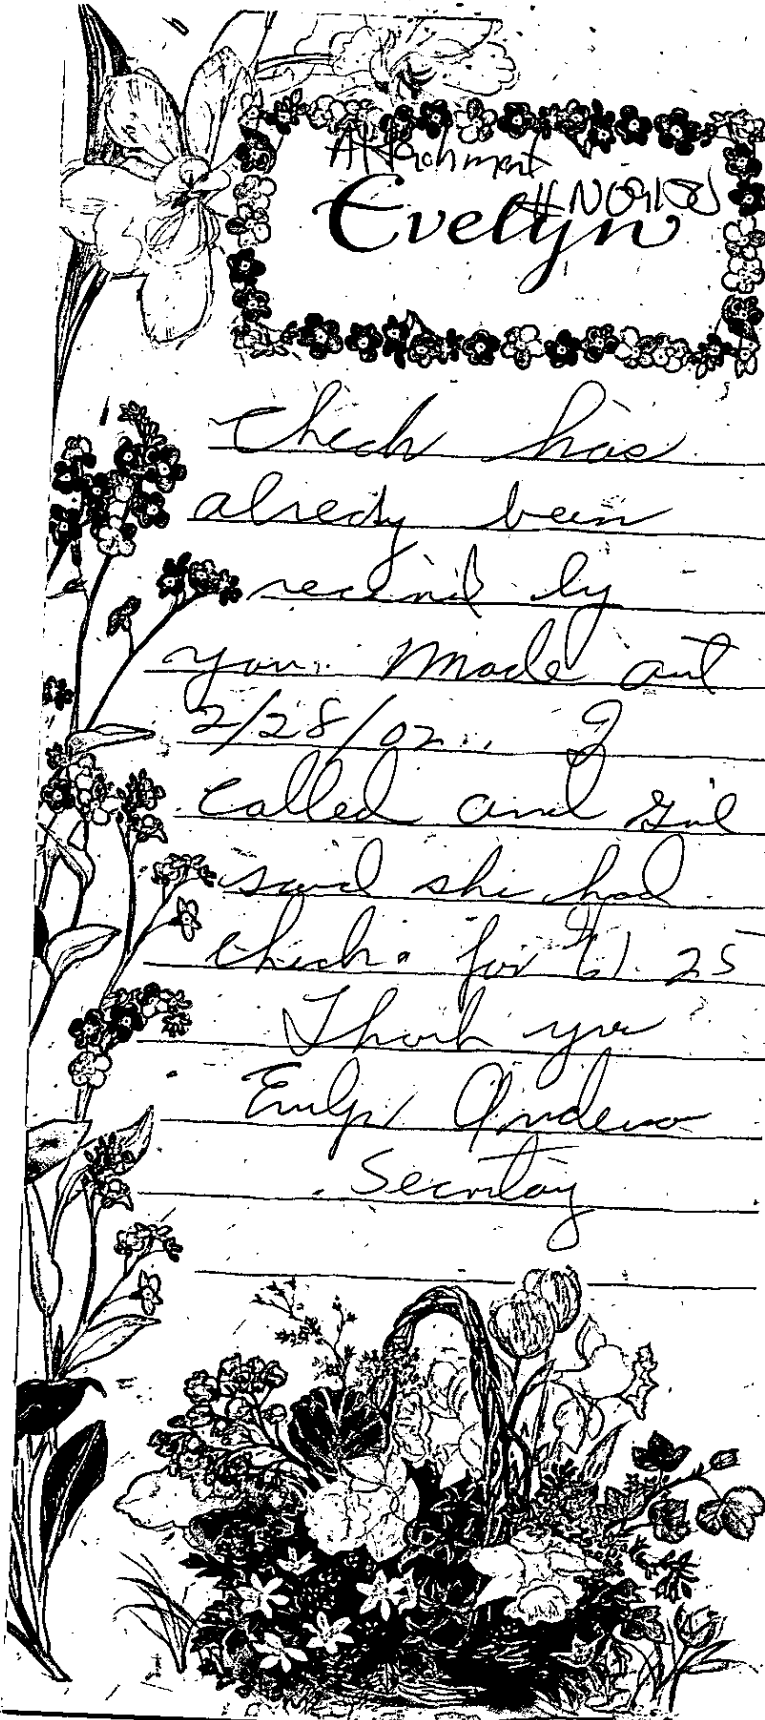 Attachment
Evelyn
Check has
alredy been
receivd by
you. Made out
2/28/02. I
called and girl
said she had
check. for 61.25
Thank you
Evelyn Anderso
Secretay